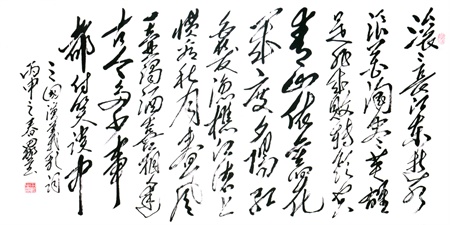 滚〻長江東逝水
浪花淘尽英雄
是非成败转頭空
青山依舊在
幾度夕陽红
白髮渔樵江渚上
惯看秋月春風
一壶濁酒喜相逢
古今多少事
都付笑谈中
三国演义歌词
丙申之春